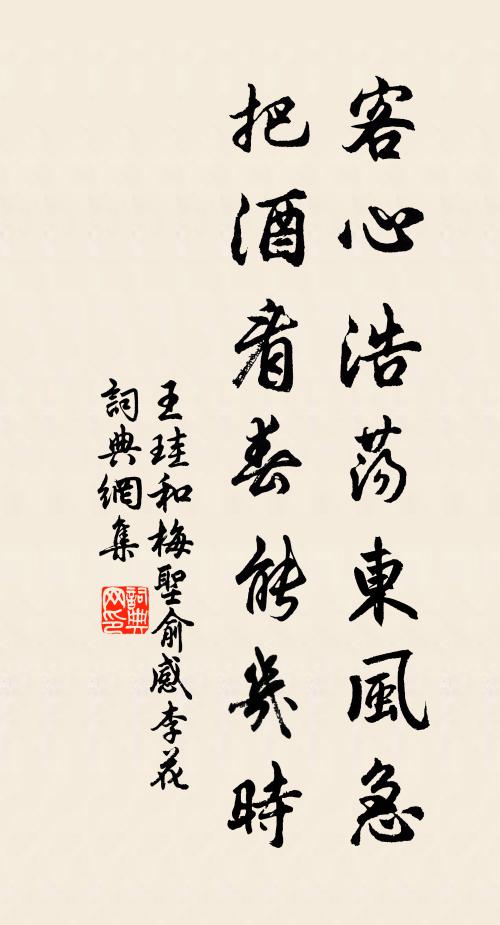 客心浩荡東風急
把酒看春能幾時
王珪和梅聖俞感李花
詞典網集
詞典网印